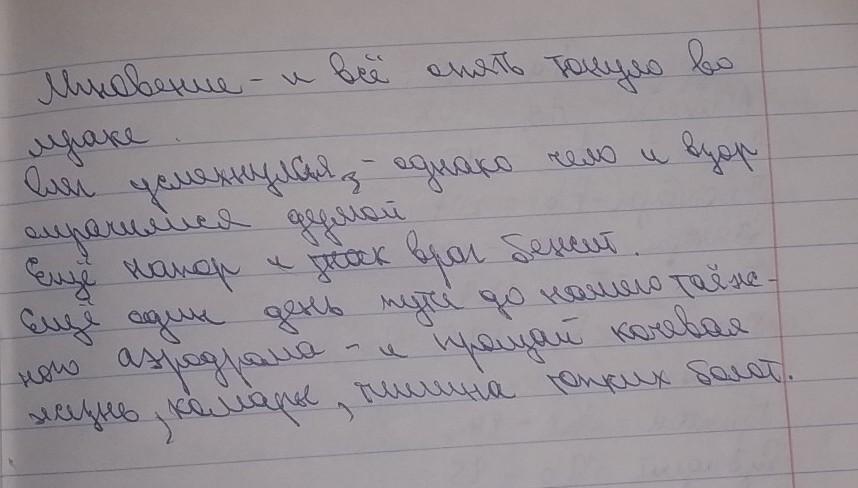 Мгновение - и всё опять тонуло во
мраке.
Олег усмехнулся, - однако чело и взор
омрачилися думой
Ещё напор и враг бежит.
Ещё один день пути до нашего таёж-
ного аэродрома - и прощай кочевая
жизнь, комары, тишина топких болот.